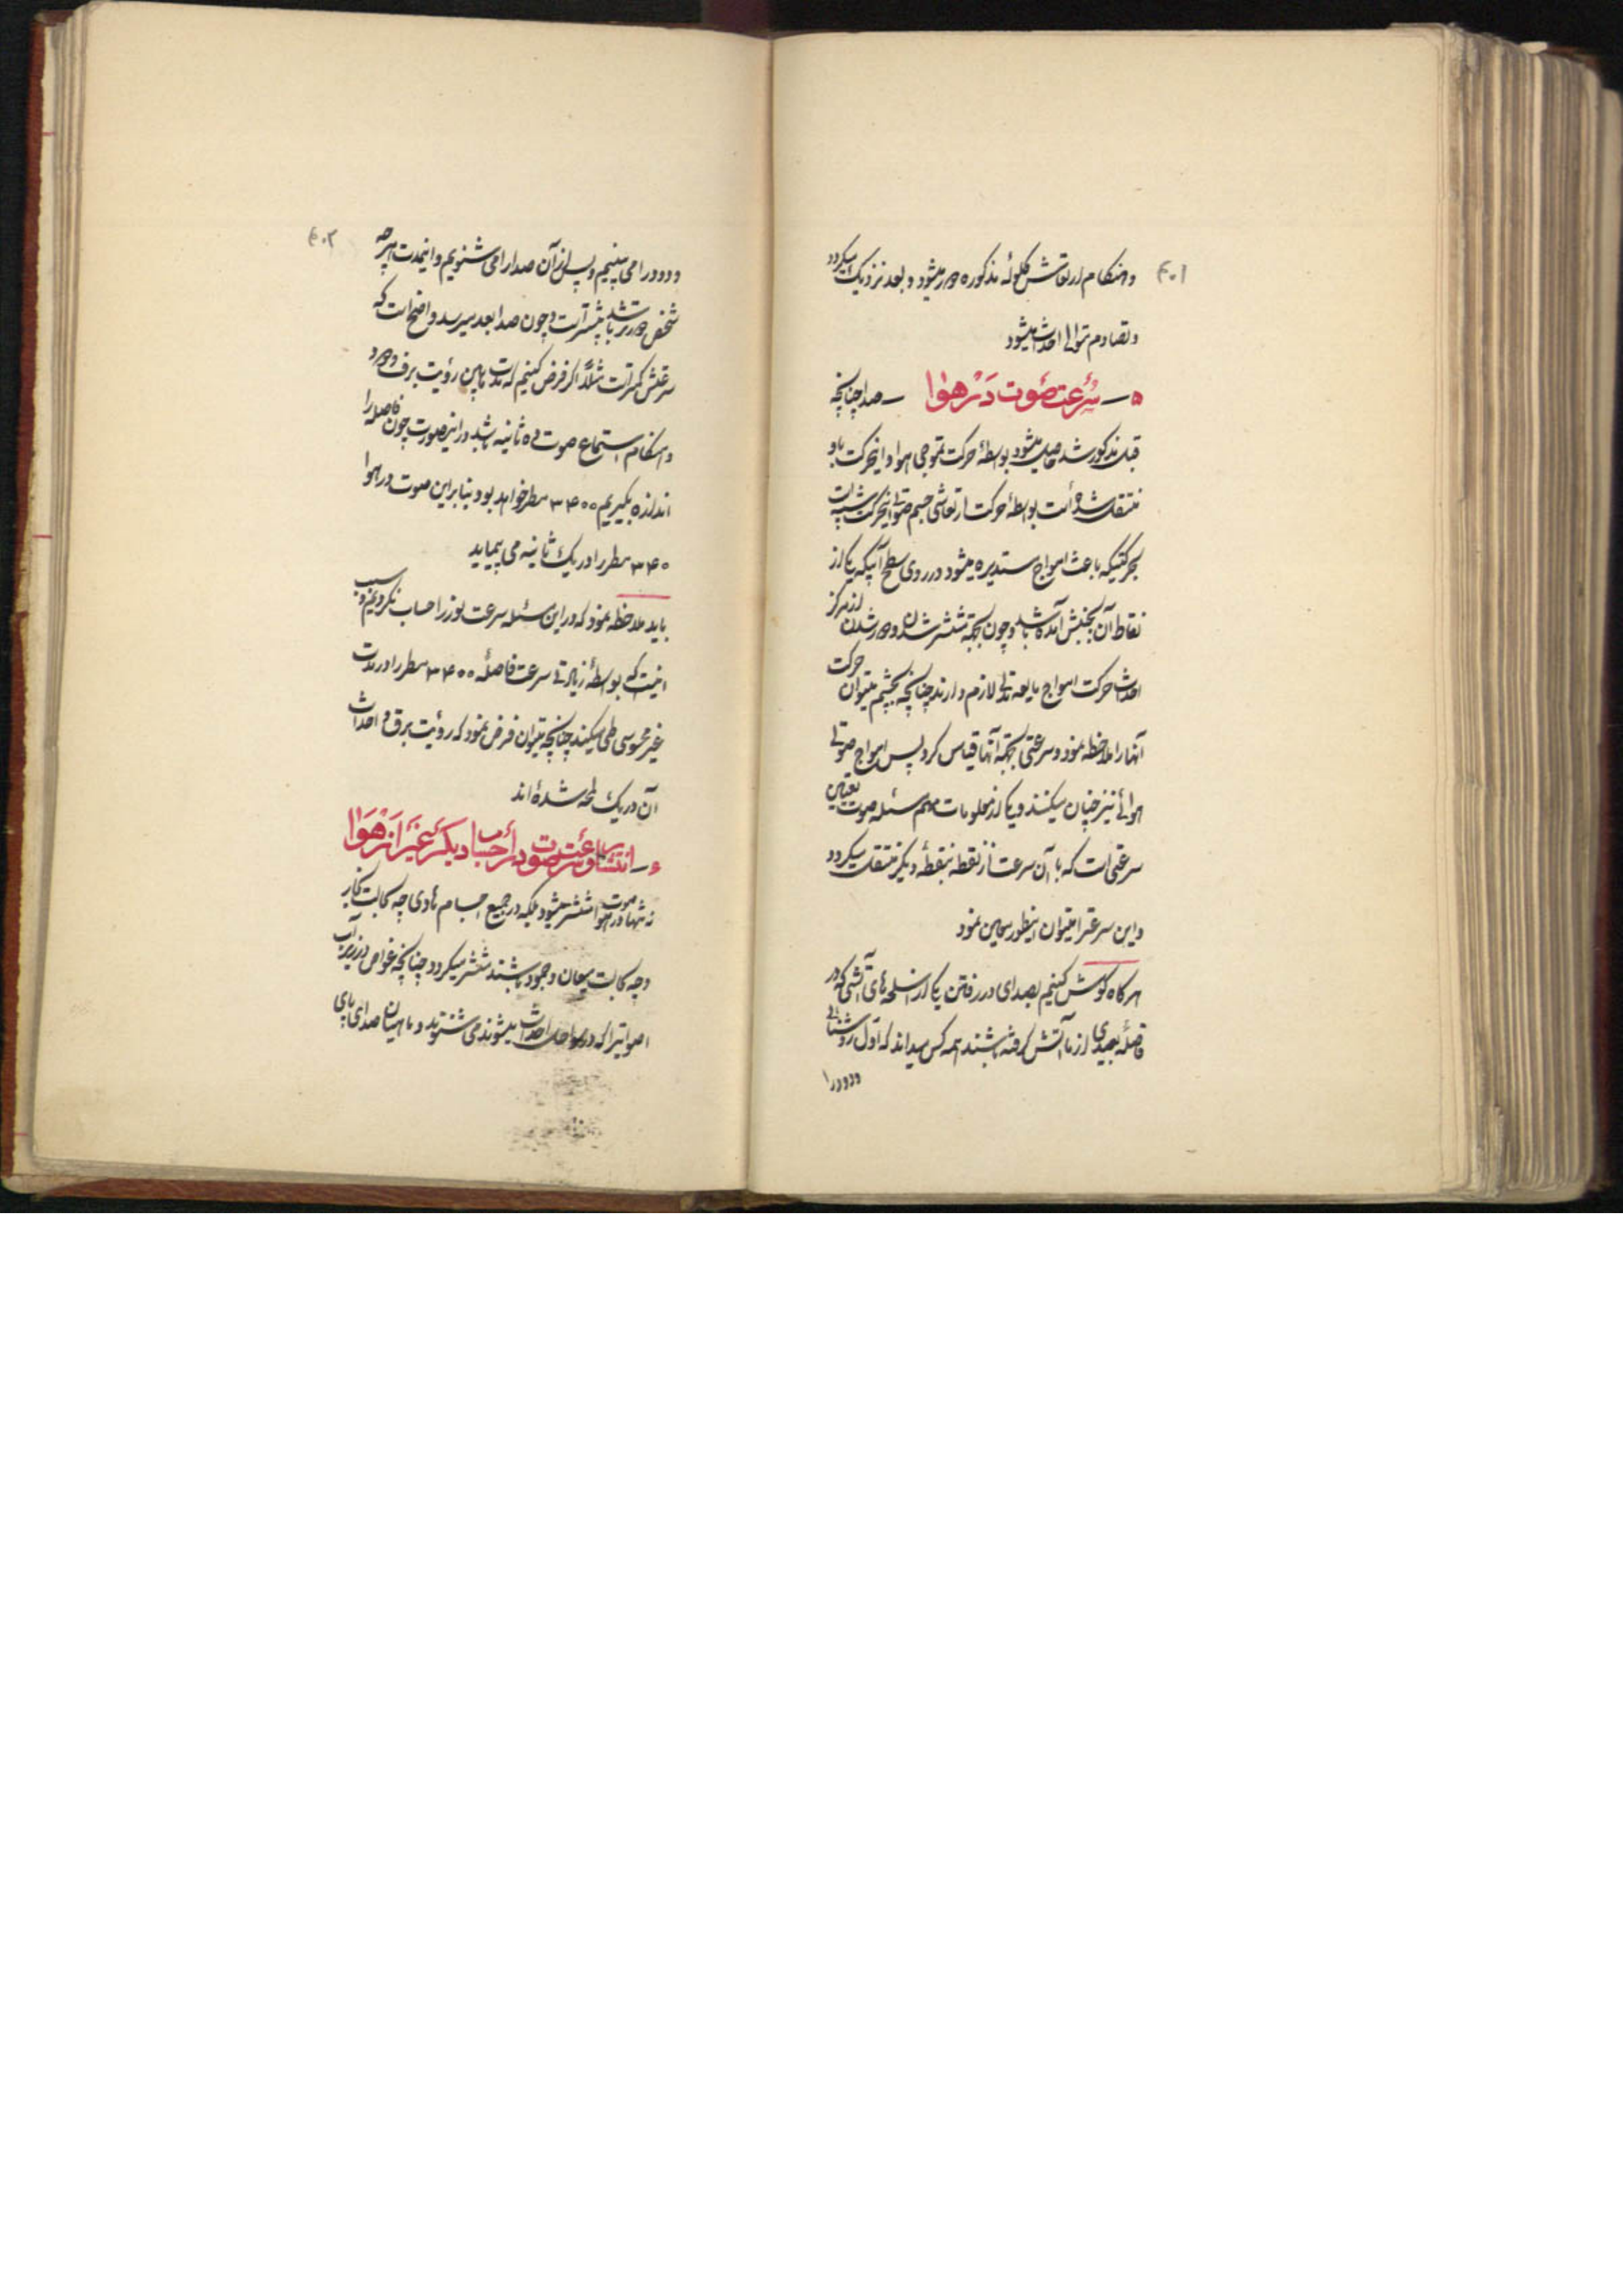 ۴۰۱
وهنگام ارتعاش گلوله مذکوره دور میشود و بعد نزدیک میگردد
وتصادم متوالی احداث میشود
۵ – سرعت صوت در هوا – صدا چنانچه
قبل مذکور شد حاصل میشود بواسطهٔ حرکت تموجی هوا و اینحرکت باو
منتقل شده است بواسطهٔ حرکت ارتعاشی جسم صوتی اینحرکت شبیه است
بحرکتیکه باعث امواج مستدیره میشود در روی سطح آبیکه یکی از
نقاط آن بجنبش آمده باشد و چون بجهة منتشر شدن و دور شدن از مرکز
احداث حرکت امواج مایعه مدتی لازم دارند چنانچه بچشم میتوان حرکت
آنها را ملاحظه نمود و سرعتی بجهة آنها قیاس کرد پس امواج صوتی
هوائی نیز چنان میکنند و یکی از معلومات مهم مسئله صوت تعیین
سرعتی است که با آن سرعت از نقطه بنقطهٔ دیگر منتقل میگردد
و این سرعترا میتوان اینطور معین نمود
هرگاه گوش کنیم بصدای در رفتن یکی از اسلحه های آتشی که در
فاصلهٔ بعیدی از ما آتش گرفته باشند همه کس میداند که اول روشنائی
ودود را
۴۰۲
ودود را می بینیم و پس از آن صدا را می شنویم و اینمدت هر چه
شخص دورتر باشد بیشتر است و چون صدا بعد میرسد واضح است که
سرعتش کمتر است مثلاً اگر فرض کنیم که مدت مابین رؤیت برق و دود
وهنگام استماع صوت ده ثانیه باشد در اینصورت چون فاصله را
اندازه بگیریم ۳۴۰۰ مطر خواهد بود بنابراین صوت در هوا
۳۴۰ مطر را در یک ثانیه می پیماید
باید ملاحظه نمود که در این مسئله سرعت نور را حساب نکردیم و سبب
اینست که بواسطهٔ زیادتی سرعت فاصلهٔ ۳۴۰۰ مطر را در مدت
غیر محسوسی طی میکند چنانچه میتوان فرض نمود که رؤیت برق و احداث
آن در یک لمحه شده اند
۶ – انتشار و سرعت صوت در اجسام دیگر غیر از هوا
نه تنها صوت در هوا منتشر میشود بلکه در جمیع اجسام مادی چه بحالت بخار
و چه بحالت میعان و جمود باشند منتشر میگردد چنانچه غواص در زیر آب
اصواتیرا که در سواحل احداث میشوند می شنوند و ماهیان صدای پای